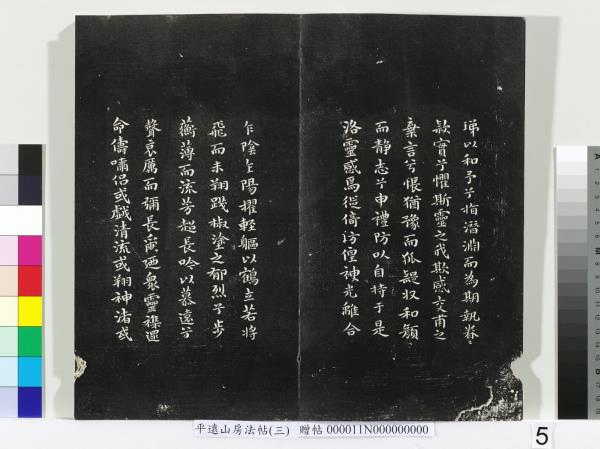 珶以和予兮指潛淵而為期執眷〻
款實兮懼斯靈之我欺感交甫之
棄言兮悵猶豫而狐疑收和顏
而静志兮申禮防以自持于是
洛靈感焉徙倚彷徨神光離合
乍陰乍陽擢輕軀以鶴立若將
飛而未翔踐椒塗之郁烈兮步
蘅薄而流芳超長吟以慕遠兮
聲哀厲而彌長爾迺衆靈襍遝
命儔嘯侶或戲清流或翔神渚或
平遠山房法帖(三) 贈帖 000011N000000000
5